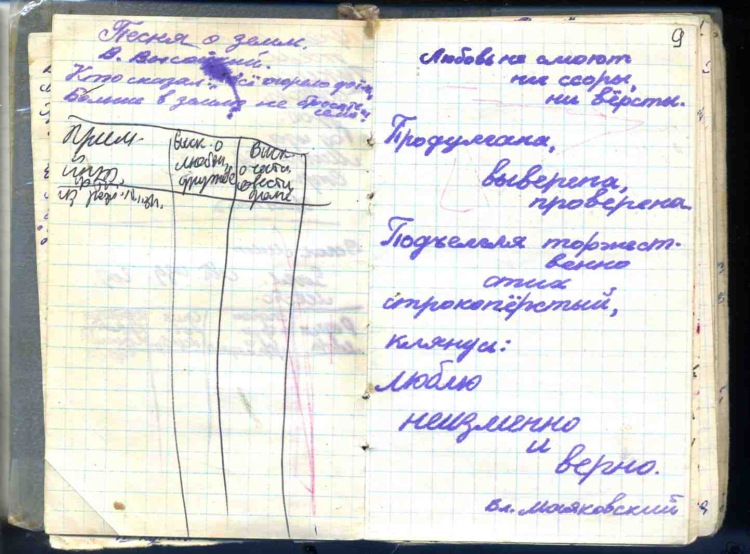 Песня о земле.
В. Высоцкий.
Кто сказал: "Всё сгорело дотла,
Больше в землю не бросите
семя"
Прим.
Выск. о
любви,
дружбе
Выск.
о чести
совести
9
Любовь не смоют
ни ссоры,
ни вёрсты.
Продумана,
выверена,
проверена.
Подъемля торжест-
венно
стих
строкопёрстый,
клянусь:
люблю
неизменно
и
верно.
Вл. Маяковский